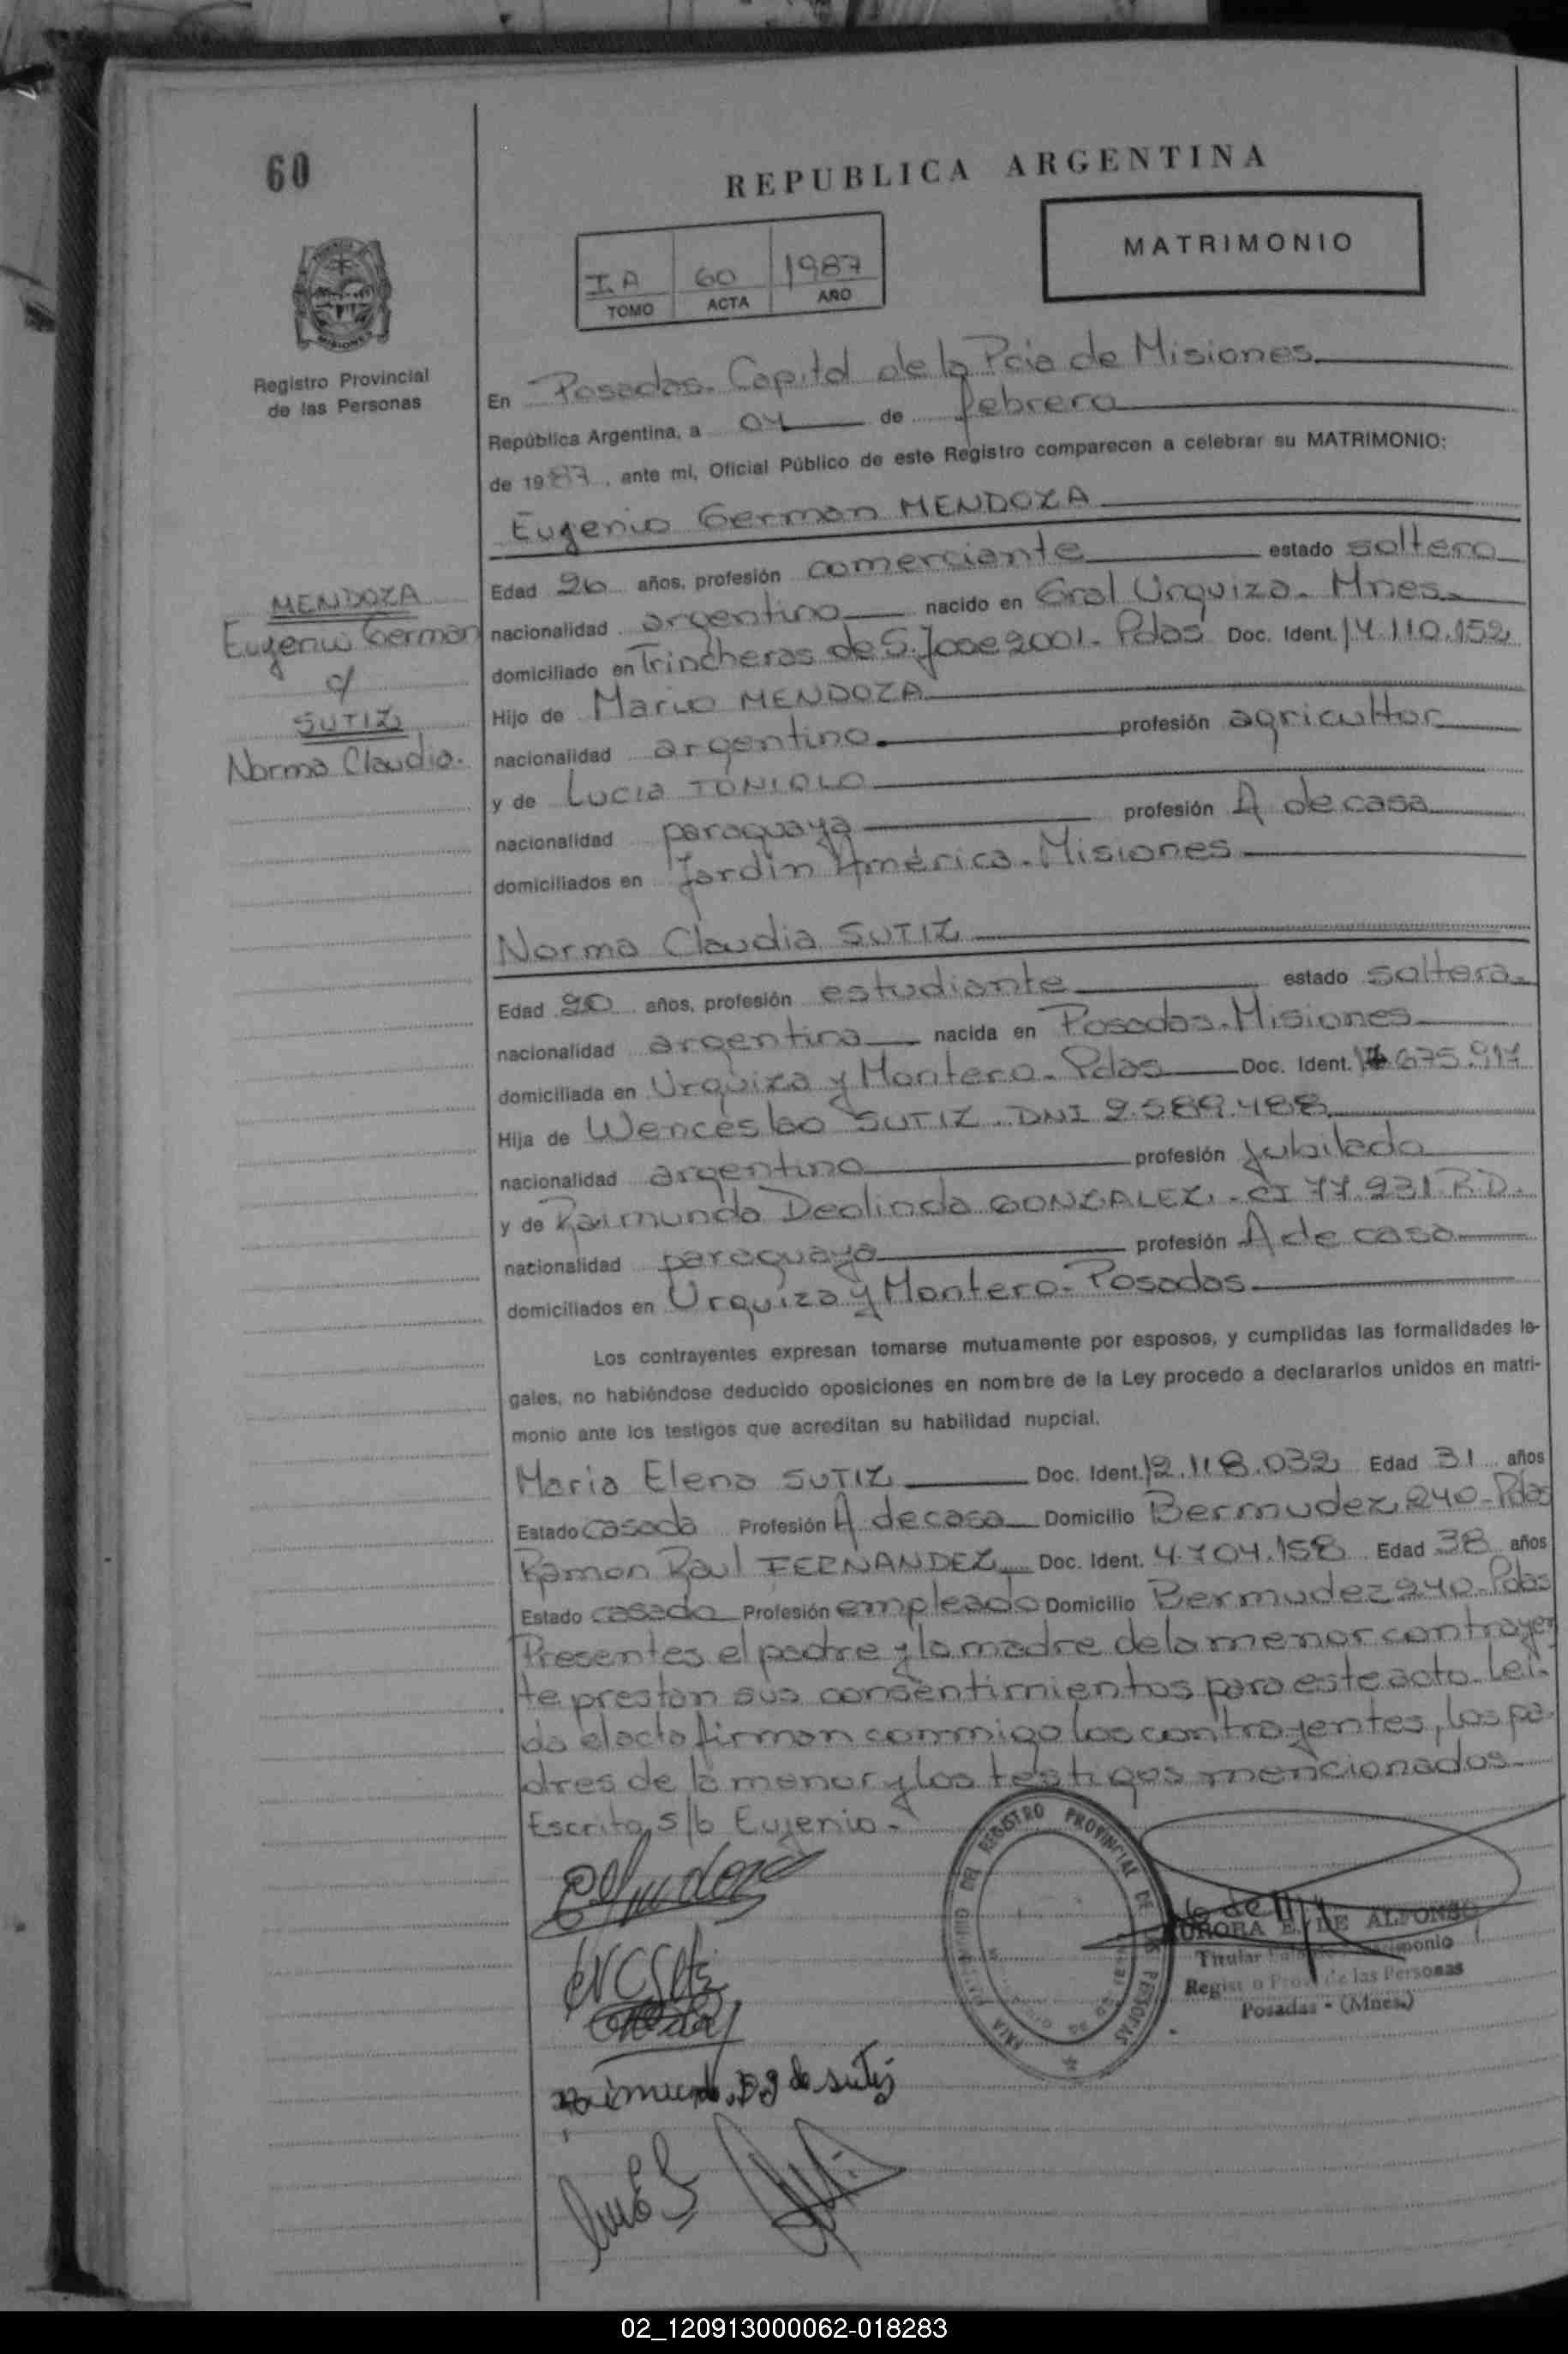 60
REPUBLICA ARGENTINA
MATRIMONIO
I A 60 1987
TOMO ACTA AÑO
Registro Provincial
de las Personas
En Posadas. Capital de la Pcia de Misiones
República Argentina, a 04 de febrero
de 1987, ante mi, Oficial Público de este Registro comparecen a celebrar su MATRIMONIO:
Eugenio German MENDOZA
Edad 26 años, profesión comerciante estado soltero
nacionalidad argentino nacido en Gral Urquiza. Mnes.
domiciliado en Trincheras de S. Jose 2001- Pdas Doc. Ident. 14.110.152
Hijo de Mario MENDOZA
nacionalidad argentino. profesión agricultor
y de Lucia TONIOLO
nacionalidad paraguaya profesión A de casa
domiciliados en Jardin América. Misiones
MENDOZA
Eugenio German
c/
SUTIZ
Norma Claudia.
Norma Claudia SUTIZ
Edad 20 años, profesión estudiante estado soltera.
nacionalidad argentina nacida en Posadas. Misiones
domiciliada en Urquiza y Montero. Pdas Doc. Ident. 675.917
Hija de Wenceslao SUTIZ. DNI 2.589.488
nacionalidad argentino profesión jubilado
y de Raimunda Deolinda GONZALEZ. - CI 77.231 P.D.
nacionalidad paraguaya profesión A de casa
domiciliados en Urquiza y Montero. Posadas
Los contrayentes expresan tomarse mutuamente por esposos, y cumplidas las formalidades le-
gales, no habiéndose deducido oposiciones en nombre de la Ley procedo a declararlos unidos en matri-
monio ante los testigos que acreditan su habilidad nupcial.
Maria Elena SUTIZ Doc. Ident. 12.118.032 Edad 31 años
Estado casada Profesión A de casa Domicilio Bermudez 240-Pdas
Ramon Raul FERNANDEZ Doc. Ident. 4.704.158 Edad 38 años
Estado casado Profesión empleado Domicilio Bermudez 240-Pdas
Presentes el padre y la madre de la menor contrayen
te prestan sus consentimientos para este acto. Lei-
da el acta firman conmigo los contrayentes, los pa-
dres de la menor y los testigos mencionados.
Escrito s/b Eugenio.
DEL REGISTRO PROVINCIAL DE LAS PERSONAS
AURORA E. DE ALFONSO
Titular
Registro Prov. de las Personas
Posadas - (Mnes.)
Raimunda D g de sutiz
02_120913000062-018283